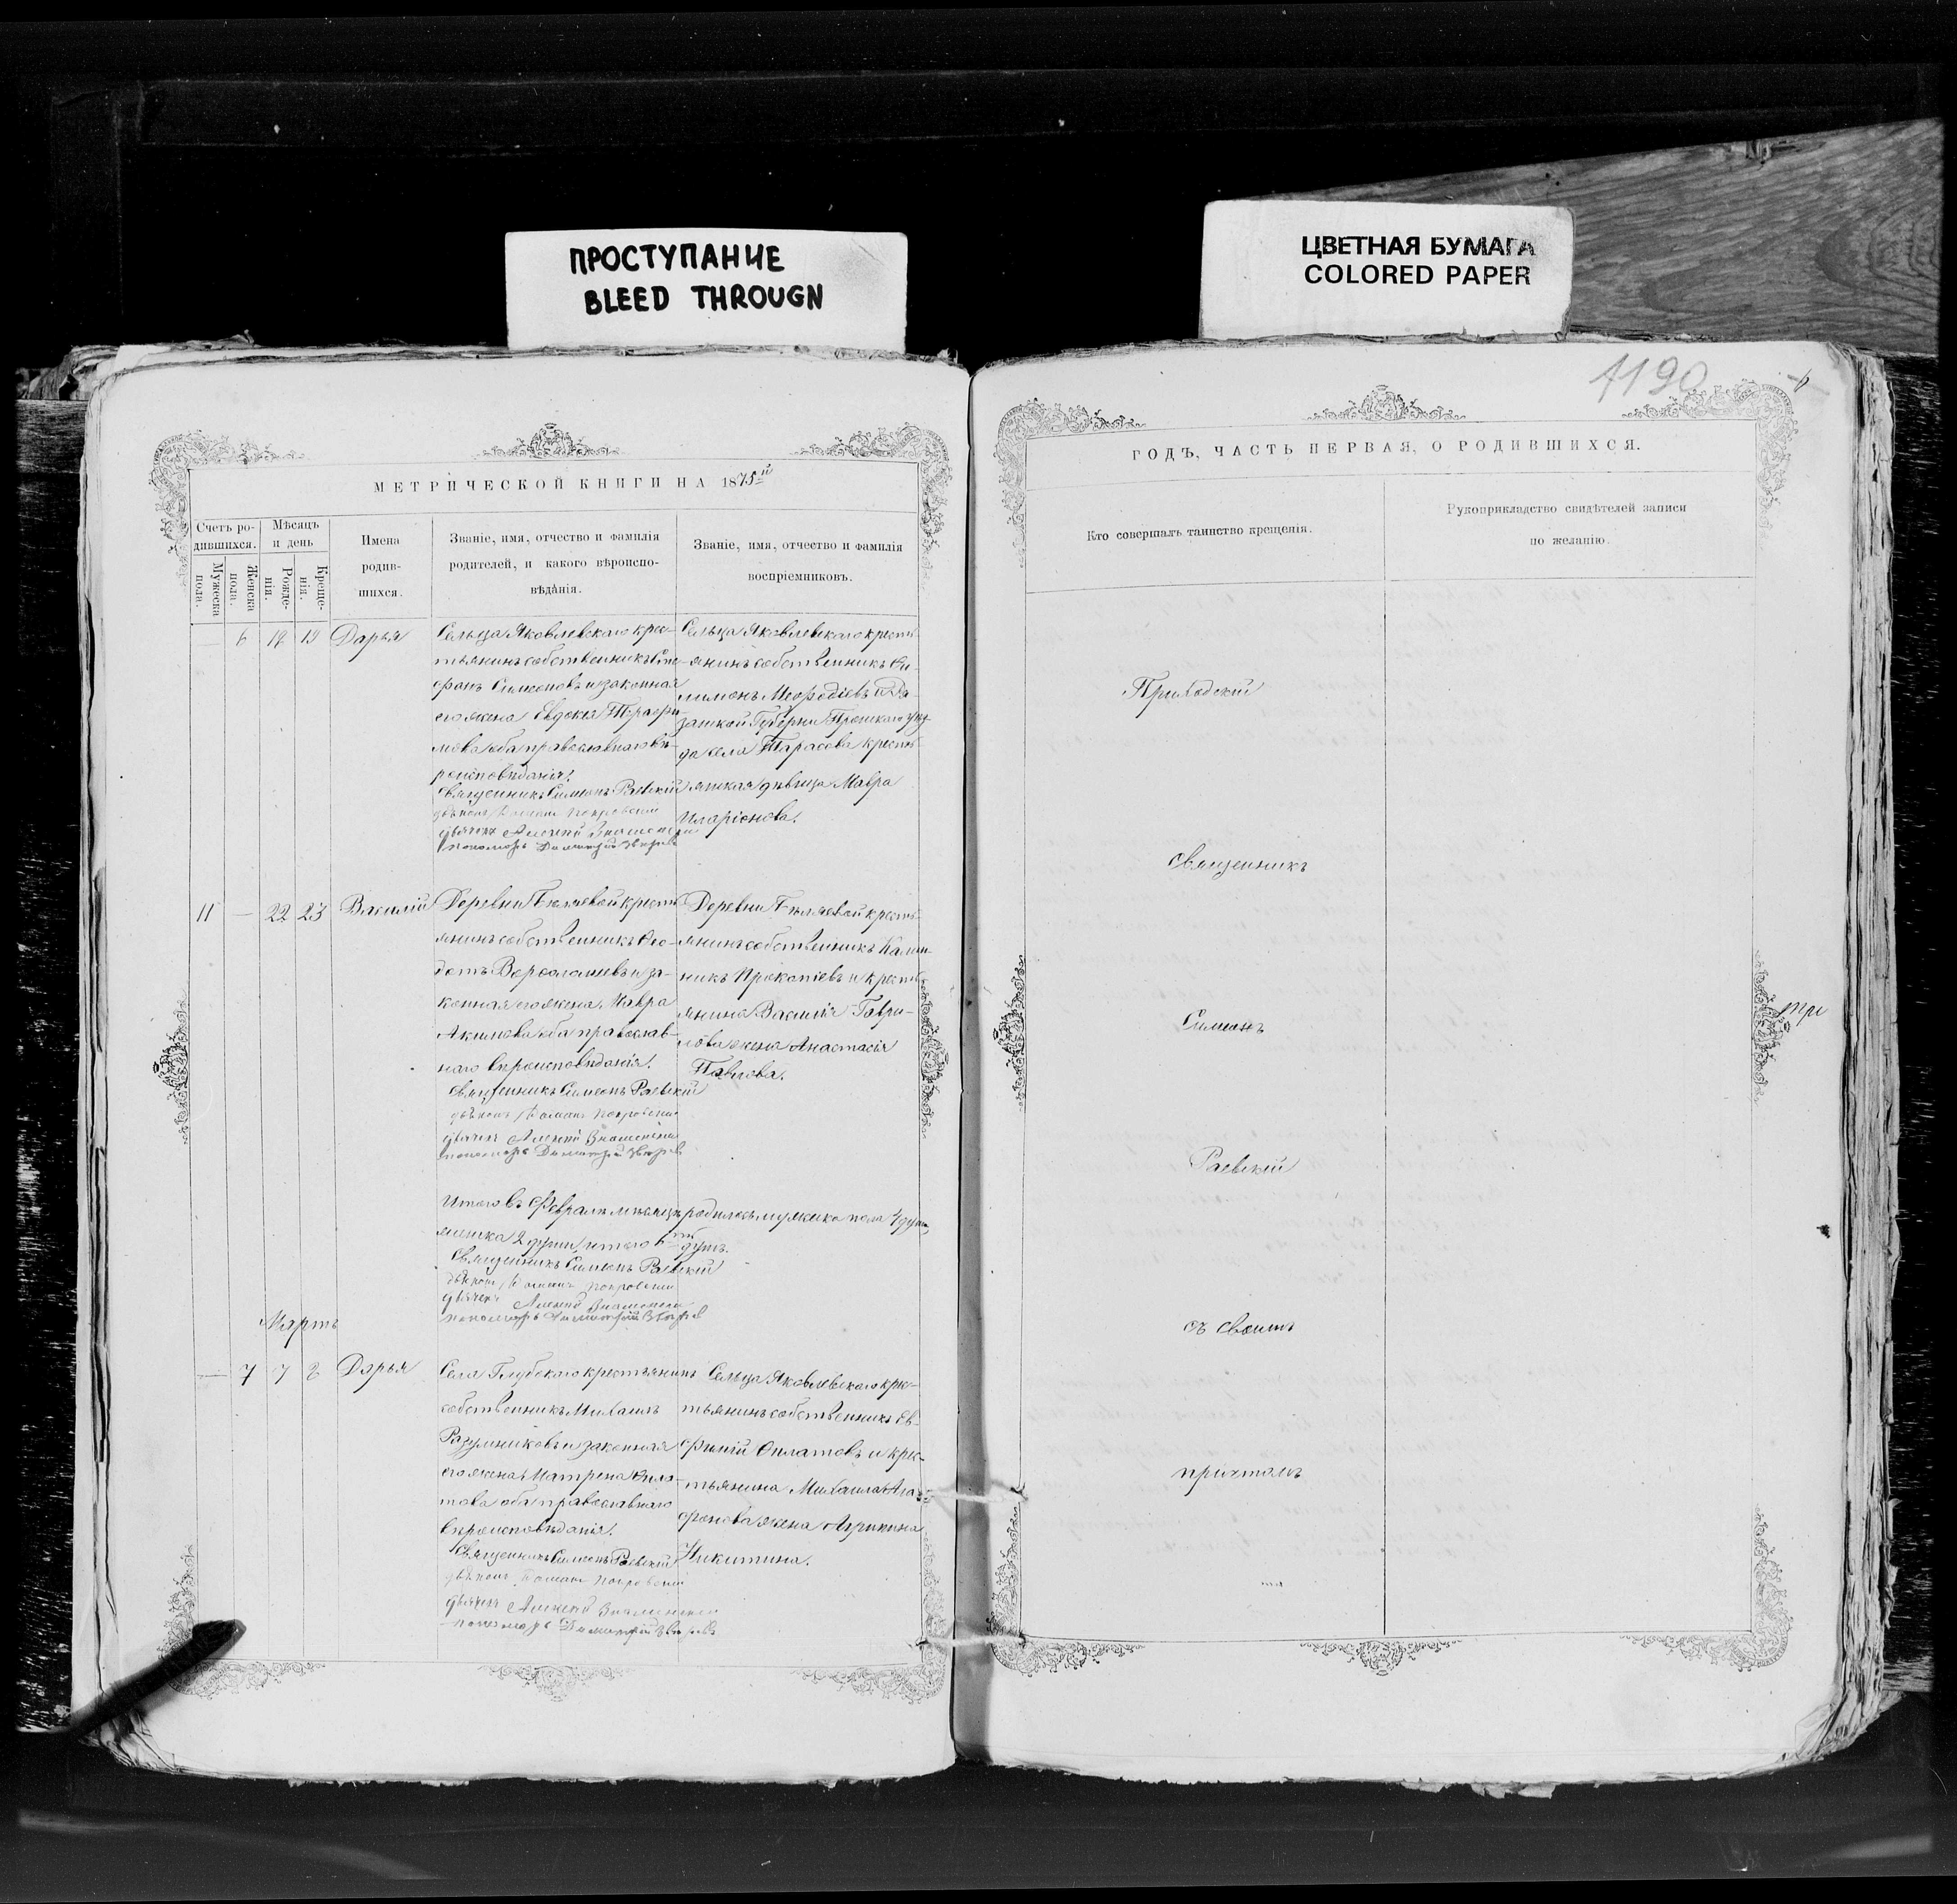 ПРОСТУПАНИЕ
BLEED THROUGN
ЦВЕТНАЯ БУМАГА
COLORED PAPER
1190
МЕТРИЧЕСКОЙ КНИГИ НА 1875й
Счетъ ро-
дившихся.
Мужеска
пола.
Женска
пола.
Мѣсяцъ
и день
Рожде-
нія.
Креще-
нія.
Имена
родив-
шихся.
Званіе, имя, отчество и фамилія
родителей, и какого вѣроиспо-
вѣданія.
Званіе, имя, отчество и фамилія
воспріемниковъ.
— 6 Дарья
Сельца Яковлевскаго крес-
тьянинъ собственникъ Сте-
фанъ Симеоновъ и законная
его жена Евдокія Трофи-
мова оба православнаго вѣ-
роисповѣданія.
Священникъ Симеонъ Раевскій
Покровскій
Дьячекъ Алексѣй Знаменскій
Пономарь Димитрій Звѣревъ
Сельца Яковлевскаго кресть-
янинъ собственникъ Фи-
лимонъ Меѳодіевъ и Ря-
занской Губерніи Пронскаго уѣз-
да села Тарасова кресть-
янская дѣвица Мавра
Иларіонова.
11 — 22 23 Василій
Деревни Бѣляевой кресть-
янинъ собственникъ Ѳео-
дотъ Варѳоломеевъ и за-
конная его жена Мавра
Акимова оба православ-
наго вѣроисповѣданія.
Священникъ Симеонъ Раевскій
Покровскій
Дьячекъ Алексѣй Знаменскій
Пономарь Димитрій Звѣревъ
Деревни Бѣляевой кресть-
янинъ собственникъ Калин-
никъ Прокопіевъ и кресть-
янина Василія Гаври-
лова жена Анастасія
Павлова.
Итого въ Февралѣ мѣсяцѣ родилось мужска пола 4 души,
женска 2 души, итого 6ть душъ.
Священникъ Симеонъ Раевскій
Покровскій
Дьячекъ Алексѣй Знаменскій
Пономарь Димитрій Звѣревъ
Мартъ
— 7 7 Дарья
Села Глубокаго крестьянинъ
собственникъ Михаилъ
Разумниковъ и законная
его жена Матрена Фила-
това оба православнаго
вѣроисповѣданія.
Священникъ Симеонъ Раевскій
Покровскій
Дьячекъ Алексѣй Знаменскій
Пономарь Димитрій Звѣревъ
Сельца Яковлевскаго крес-
тьянинъ собственникъ Ев-
фимій Филатовъ и крес-
тьянина Михаила Ага-
фонова жена Агрипина
Никитина.
ГОДЪ, ЧАСТЬ ПЕРВАЯ, О РОДИВШИХСЯ.
Кто совершалъ таинство крещенія.
Рукоприкладство свидѣтелей записи
по желанію.
Приходскій
Священникъ
Симеонъ
Раевскій
съ своимъ
причтомъ
при